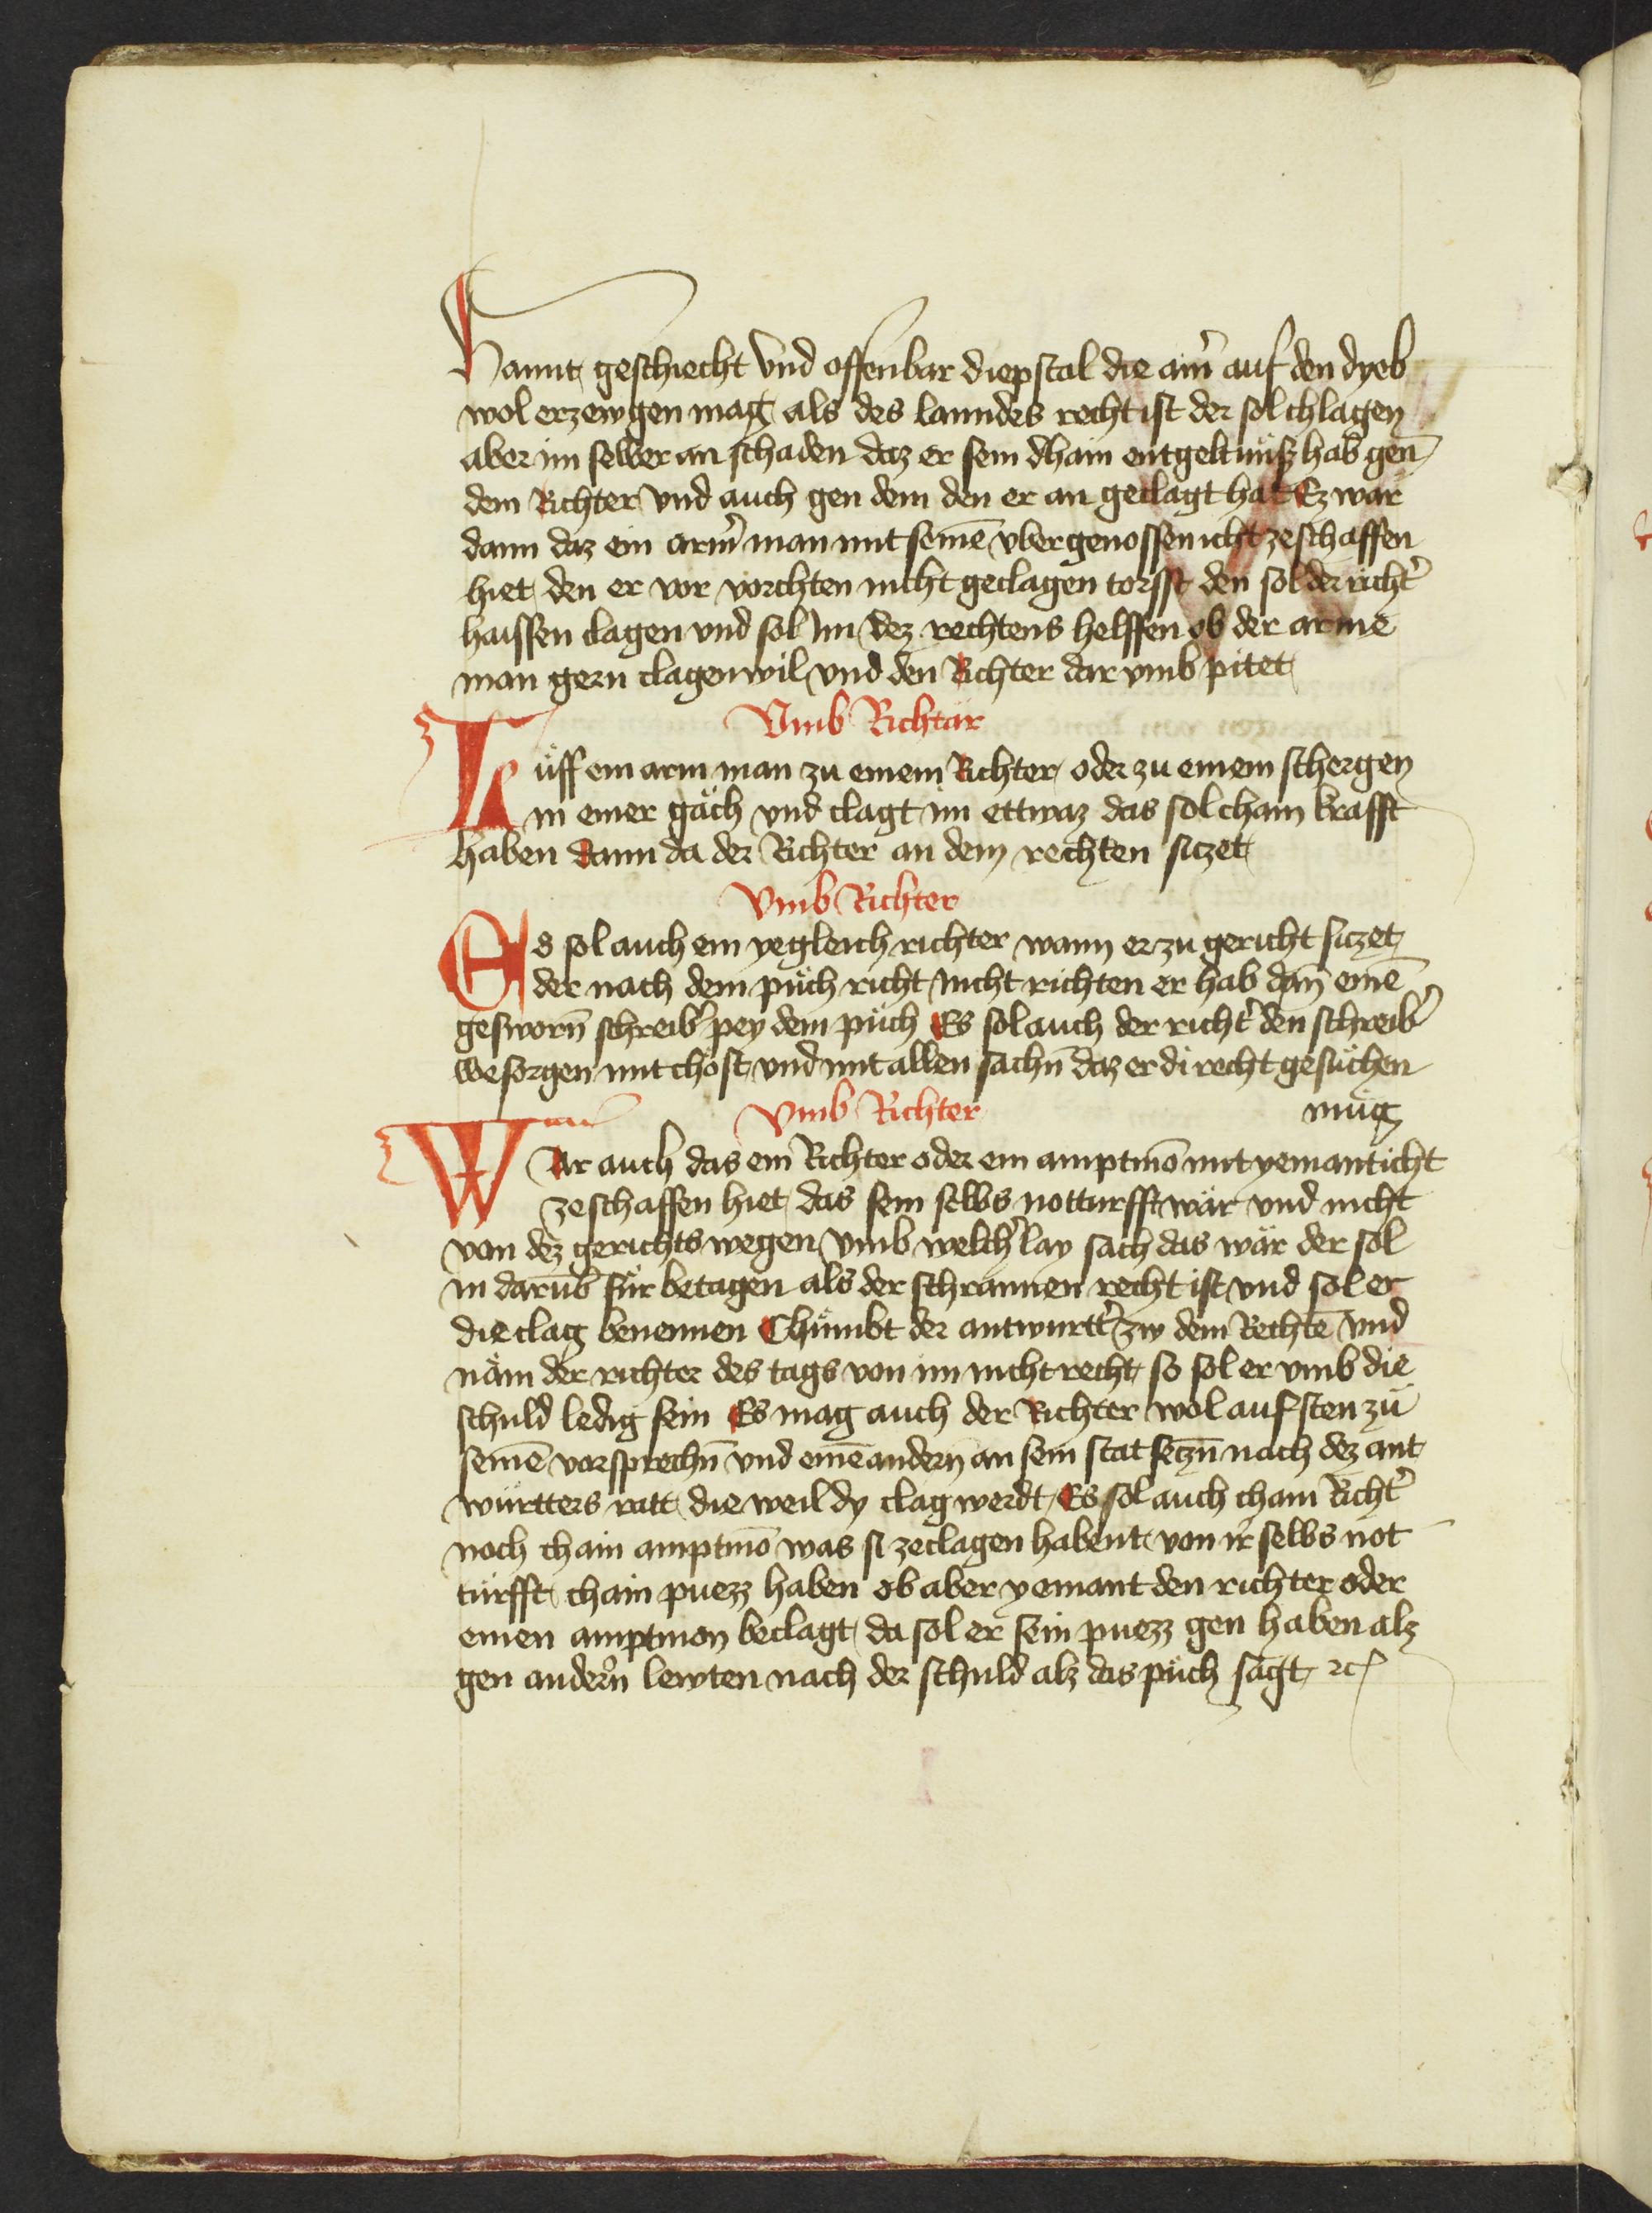 Hannt geschiecht vnd offenbar diepstal die ainr̉ auf den dyeb
wol erzewgen mag als des lanndes recht ist der sol chlagen
aber im selber an schaden daz er sein dhain entgeltnüsz hab gen̄
dem Richter vnd auch gen dem den er an geclagt hat Ez wär
dann daz ein arm̉ man mit seinē vbergenossen icht ze schaffen
hiet den er vor vorchten nicht geclagen torsst den sol der richt̉
haissen clagen vnd sol im dez rechtens helffen ob der arme
man gern clagen wil vnd den Richter dar vmb pitet
Vmb Richtär
Lüff ein arm man zu einem Richter oder zu einem schergen
in einer gäch vnd clagt im ettwaz das sol chain krafft
haben dann da der Richter an dem rechten siczet
Vmb Richter
Es sol auch ein yegleich richter wann er zu gericht siczet
der nach dem püch richt nicht richten er hab dan̄ einē
gesworn̄ schreib̉ pey dem püch Es sol auch der richt̉ den schreib̉
wesorgen mit chost vnd mit allen sachn̄ daz er di recht gesüchen
müg
Vmb Richter
WAr auch das ein Richter oder ein amptmō mit yemant icht
ze schaffen hiet das sein selbs notturfft wär vnd nicht
von dez gerichts wegen vmb welch̉lay sach das wär der sol
in darūb für betagen als der schrannen recht ist vnd sol er
die clag benennen Chümbt der antwurtt̉ zw dem Rechtē vnd
näm der richter des tags von im nicht recht so sol er vmb die
schuld ledig sein Es mag auch der Richter wol auf sten zü
seinē vorsprechn̄ vnd einē andern̄ an sein stat seczn̄ nach dez ant
württers ratt die weil dy clag werdt Es sol auch chain Richt̉
noch chain amptmō was si ze clagen habent von ir̉ selbs not
türfft chain puezz haben ob aber yemant den richter oder
einen amptmon beclagt da sol er sein puezz gen haben alz
gen andern̉ lewten nach der schuld alz das püch sagt ꝛc